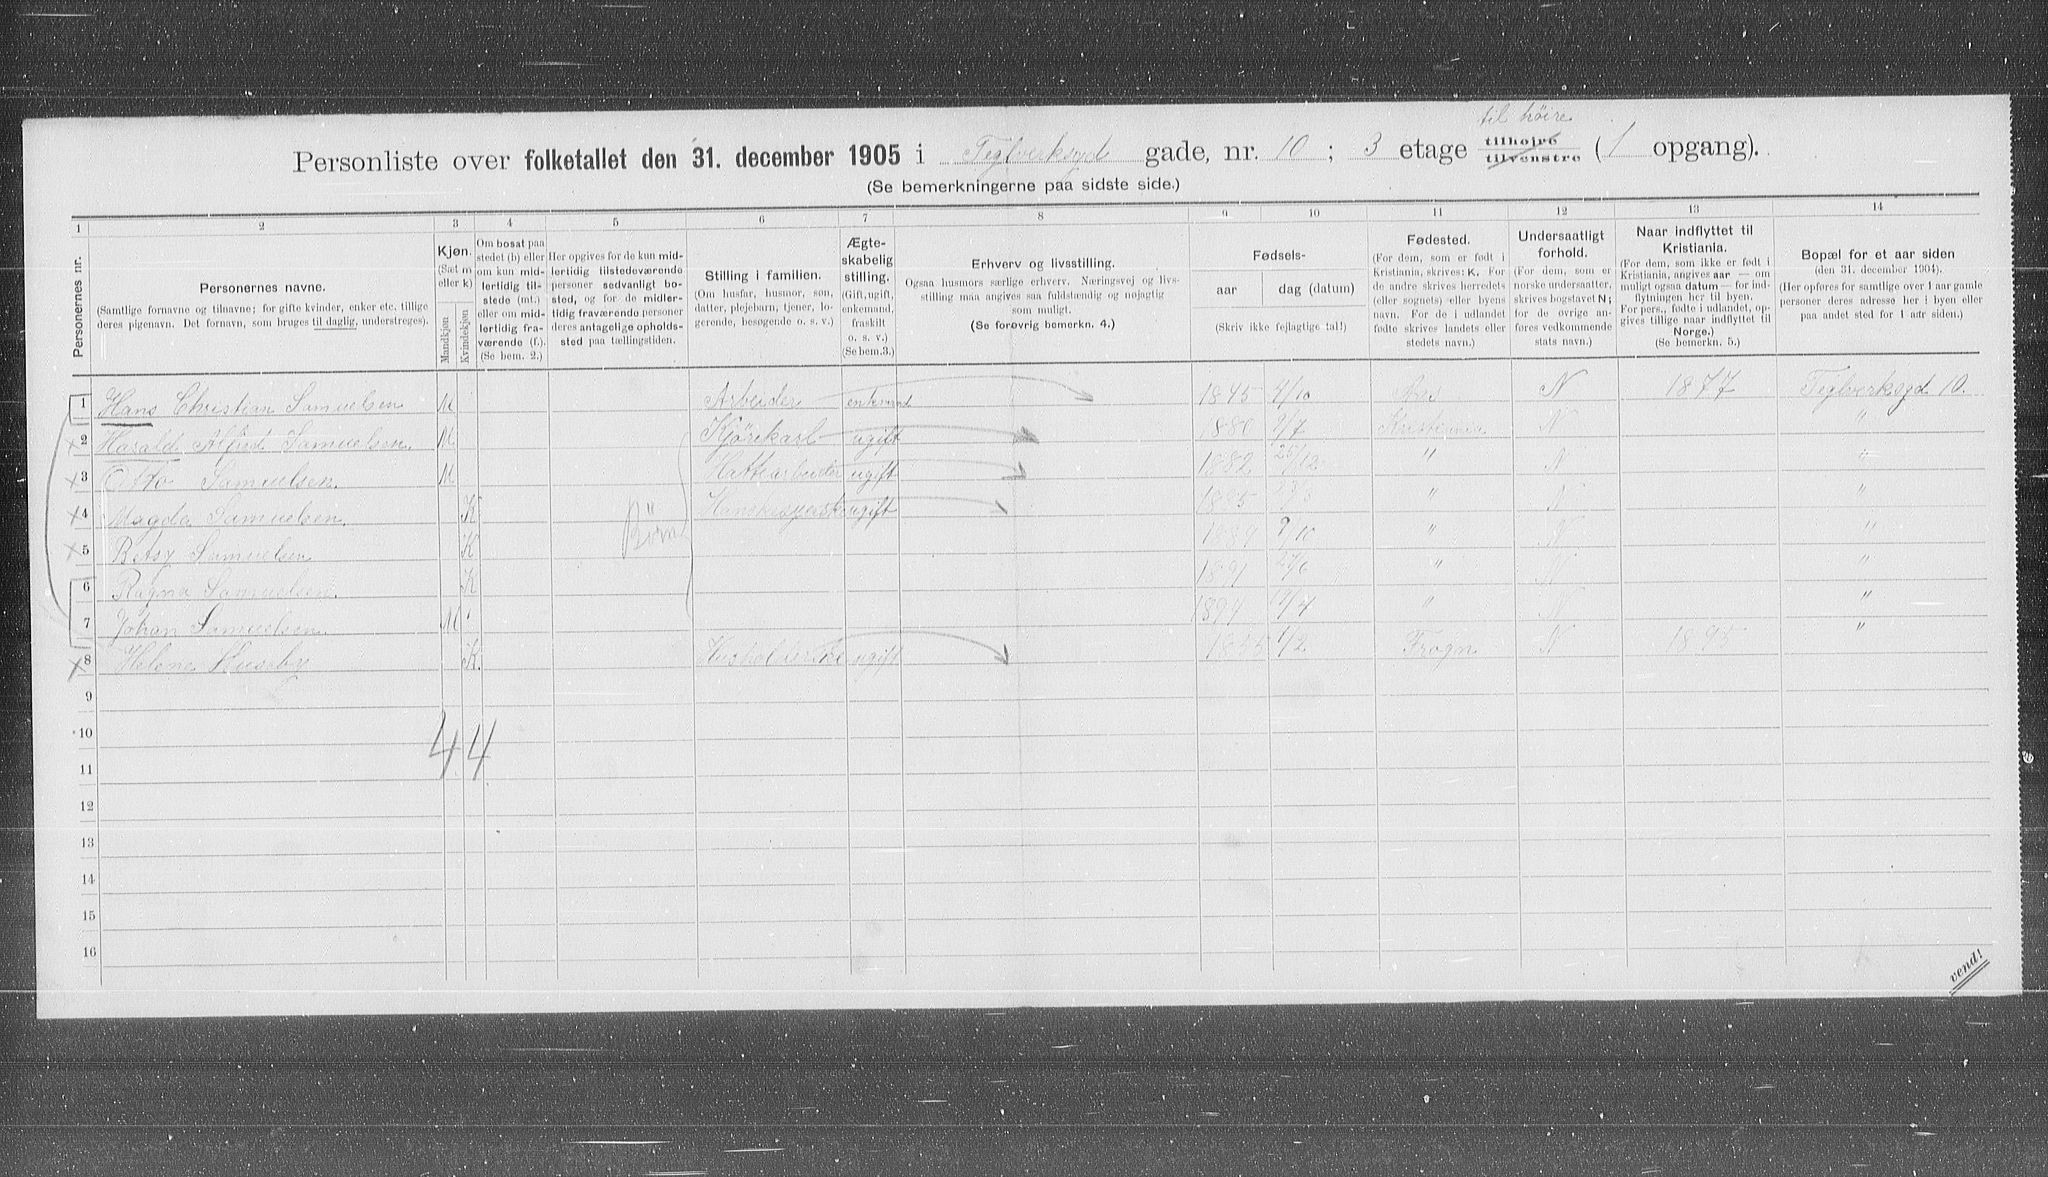 til høire
Personliste over folketallet den 31. december 1905 i Teglverksgd gade, nr. 10 ; 3 etage tilhøire tilvenstre (1 opgang).
(Se bemerkningerne paa sidste side.)
1 2 3 4 5 6 7 8 9 10 11 12 13 14
Personernes nr.
Personernes navne.
(Samtlige fornavne og tilnavne; for gifte kvinder, enker etc. tillige
deres pigenavn. Det fornavn, som bruges til daglig, understreges).
Kjøn.
(Sæt m
eller k)
Mandkjøn
Kvindekjøn
Om bosat paa
stedet (b) eller
om kun mid-
lertidig til-
stede (mt.)
eller om mid-
lertidig fra-
værende (f.).
(Se bem. 2.)
Her opgives for de kun mid-
lertidig tilstedeværende
personer sedvanligt bo-
sted, og for de midler-
tidig fraværende personer
deres antagelige opholds-
sted paa tællingstiden.
Stilling i familien.
(Om husfar, husmor, søn,
datter, plejebarn, tjener, lo-
gerende, besøgende o. s. v.)
Ægte-
skabelig
stilling.
(Gift, ugift,
enkemand,
fraskilt
o. s. v.)
(Se bem.3.)
Erhverv og livsstilling.
Ogsaa husmors særlige erhverv. Næringsvej og livs-
stilling maa angives saa fuldstændig og nøjagtig
som muligt.
(Se forøvrig bemerkn. 4.)
Fødsels-
aar dag (datum)
(Skriv ikke fejlagtige tal!)
Fødested.
(For dem, som er født i
Kristiania, skrives: K. For
de andre skrives herredets
(eller sognets) eller byens
navn. For de i udlandet
fødte skrives landets eller
stedets navn.)
Undersaatligt
forhold.
(For dem, som er
norske undersaatter,
skrives bogstavet N;
for de øvrige an-
føres vedkommende
stats navn.)
Naar indflyttet til
Kristiania.
(For dem, som ikke er født i
Kristiania, angives aar — om
muligt ogsaa datum — for ind-
flytningen her til byen.
For pers., fødte i udlandet, op-
gives tillige naar indflyttet til
Norge.)
(Se bemerkn. 5.)
Bopæl for et aar siden
(den 31. december 1904).
(Her opføres for samtlige over 1 aar gamle
personer deres adresse her i byen eller
paa andet sted for 1 aar siden.)
1 Hans Christian Samuelsen M Arbeider enkemand 1845 4/10 N 1877 Teglverksgd 10.
2 Harald Alfred Samuelsen M Kjørekarl ugift 1880 2/7 Kristiania N "
3 Otto Samuelsen. M Hattearbeider ugift 1882 25/12 " N "
4 Magda Samuelsen. K Hanskesyerske ugift 1885 " N "
Börn
5 Betsy Samuelsen K 1889 9/10 " N "
6 Ragna Samuelsen. K 1891 27/6 " N "
7 Johan Samuelsen M 1894 19/4 " N "
8 Helene Huseby K. Husholderske ugift 1855 1/2 Frogn N 1895 "
9
10
4 4
11
12
13
14
15
16
vend!